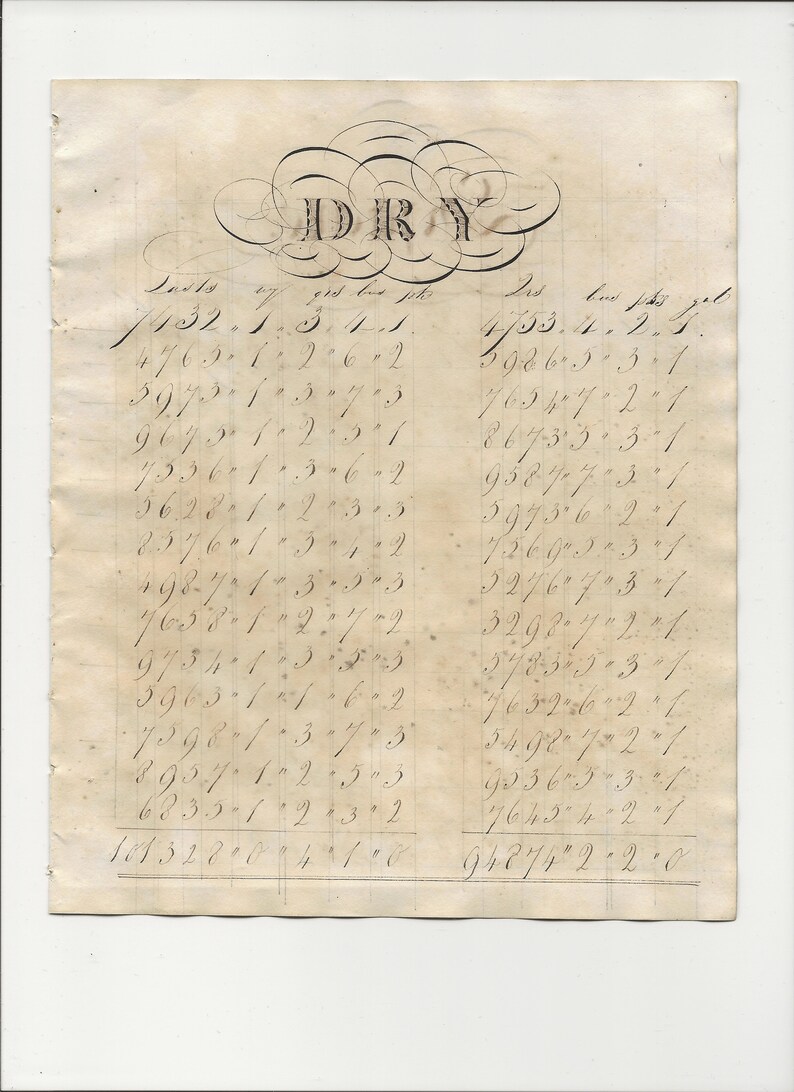 DRY
Lasts wy qrs bus pk    Qrs bus pks gal
7432 " 1 " 3 " 4 " 1    4753 " 4 " 2 " 1
4763 " 1 " 2 " 6 " 2    5986 " 5 " 3 " 1
5975 " 1 " 3 " 7 " 3    7654 " 7 " 2 " 1
9675 " 1 " 2 " 5 " 1    8673 " 5 " 3 " 1
7536 " 1 " 3 " 6 " 2    9587 " 7 " 3 " 1
5628 " 1 " 2 " 3 " 3    5973 " 6 " 2 " 1
8576 " 1 " 3 " 4 " 2    7569 " 5 " 3 " 1
4987 " 1 " 3 " 5 " 3    5276 " 7 " 3 " 1
7658 " 1 " 2 " 7 " 2    3298 " 7 " 2 " 1
9734 " 1 " 3 " 5 " 3    5783 " 5 " 3 " 1
5963 " 1 " 1 " 6 " 2    7632 " 6 " 2 " 1
7598 " 1 " 3 " 7 " 3    5498 " 7 " 2 " 1
8957 " 1 " 2 " 5 " 3    9536 " 5 " 3 " 1
6835 " 1 " 2 " 3 " 2    7645 " 4 " 2 " 1
101328 " 0 " 4 " 1 " 0    94874 " 2 " 2 " 0